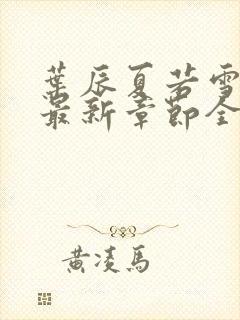 葉辰夏若雪
最新章節全
黃凌馬